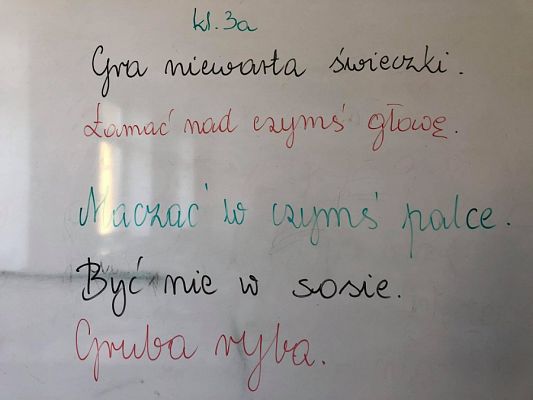 kl. 3a
Gra niewarta świeczki.
Łamać nad czymś głowę.
Maczać w czymś palce.
Być nie w sosie.
Gruba ryba.